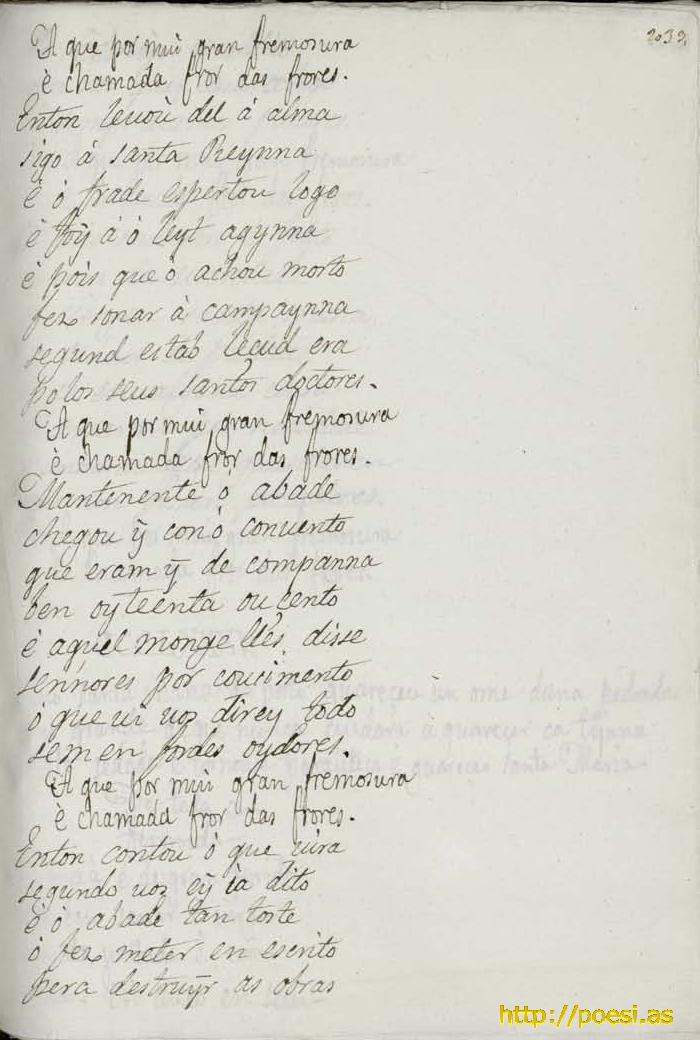 2032
A que por mui gran fremosura
è chamada fror das frores.
Enton leuoù del á alma
sigo á santa Reynna
è ó frade espertou logo
è foÿ á ó leyt agynna
è pois que ò achou morto
fez sonar à campaynna
segund estab leçud era
polos seus santos doctores.
A que por mui gran fremosura
è chamada fror das frores.
Mantenente ó abade
chegou ÿ con ó conuento
que eram ÿ de companna
ben oyteenta ou çento
è aquel monge lles disse
sennores por couçimento
ó que ui uoz direy todo
sem en fordes oydores.
A que por mui gran fremosura
è chamada fror das frores.
Enton contou ó que uira
segundo uoz eÿ ia dito
è ó abade tan toste
ò fez meter en escrito
pera destruÿr as obras
http://poesi.as